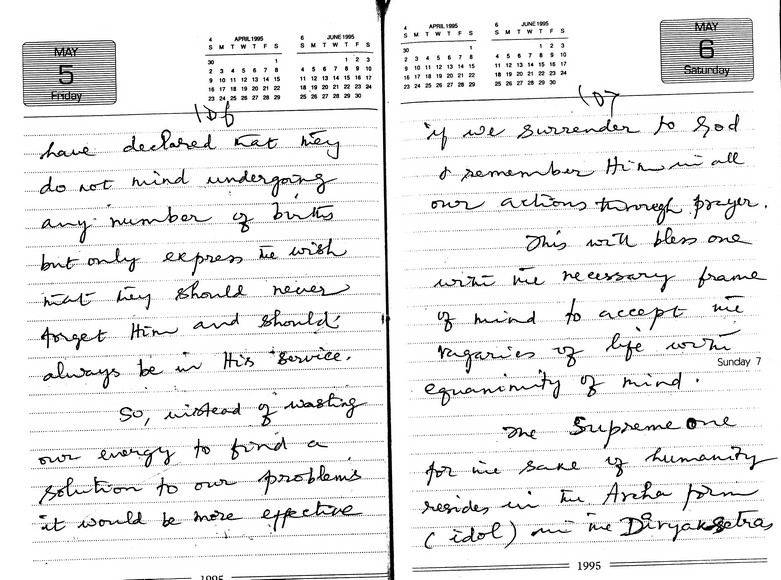 MAY
5
Friday
4 APRIL 1995
S M T W T F S
30 1
2 3 4 5 6 7 8
9 10 11 12 13 14 15
16 17 18 19 20 21 22
23 24 25 26 27 28 29
6 JUNE 1995
S M T W T F S
1 2 3
4 5 6 7 8 9 10
11 12 13 14 15 16 17
18 19 20 21 22 23 24
25 26 27 28 29 30
106
have declared that they
do not mind undergoing
any number of births
but only express the wish
that they should never
forget Him and should
always be in His service.
So, instead of wasting
our energy to find a
solution to our problems
it would be more effective
1995
4 APRIL 1995
S M T W T F S
30 1
2 3 4 5 6 7 8
9 10 11 12 13 14 15
16 17 18 19 20 21 22
23 24 25 26 27 28 29
6 JUNE 1995
S M T W T F S
1 2 3
4 5 6 7 8 9 10
11 12 13 14 15 16 17
18 19 20 21 22 23 24
25 26 27 28 29 30
MAY
6
Saturday
107
if we surrender to God
& remember Him in all
our actions through prayer.
This will bless one
with the necessary frame
of mind to accept the
vagaries of life with
Sunday 7
equanimity of mind.
The Supreme one
for the sake of humanity
resides in the Archa form
(idol) in the Divyaksetras
1995